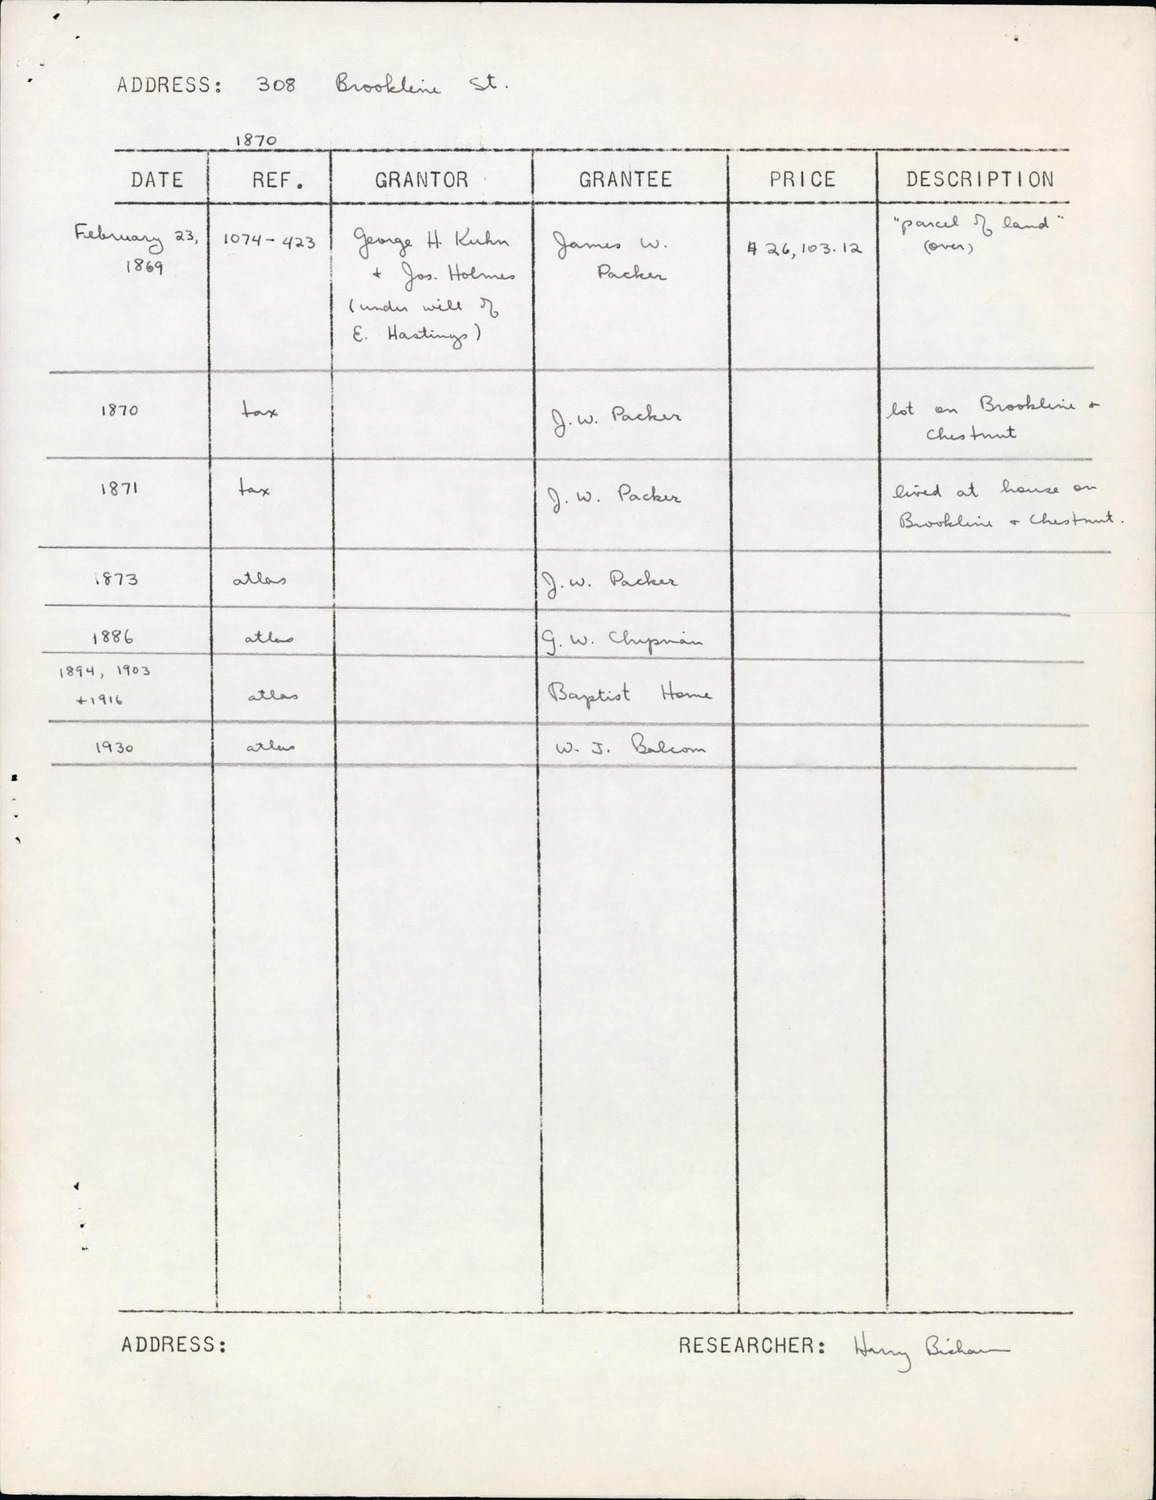 ADDRESS: 308 Brookline St.
1870
DATE REF. GRANTOR GRANTEE PRICE DESCRIPTION
February 23, 1869
1074-423
George H. Kuhn
+ Jos. Holmes
(under will of
E. Hastings)
James W.
Packer
$26,103.12
"parcel of land"
(over)
1870 tax J.W. Packer lot on Brookline +
Chestnut
1871 tax J.W. Packer lived at house on
Brookline + Chestnut.
1873 atlas J.W. Packer
1886 atlas G.W. Chipman
1894, 1903
+1916 atlas Baptist Home
1930 atlas W. J. Balcom
ADDRESS: RESEARCHER: Harry